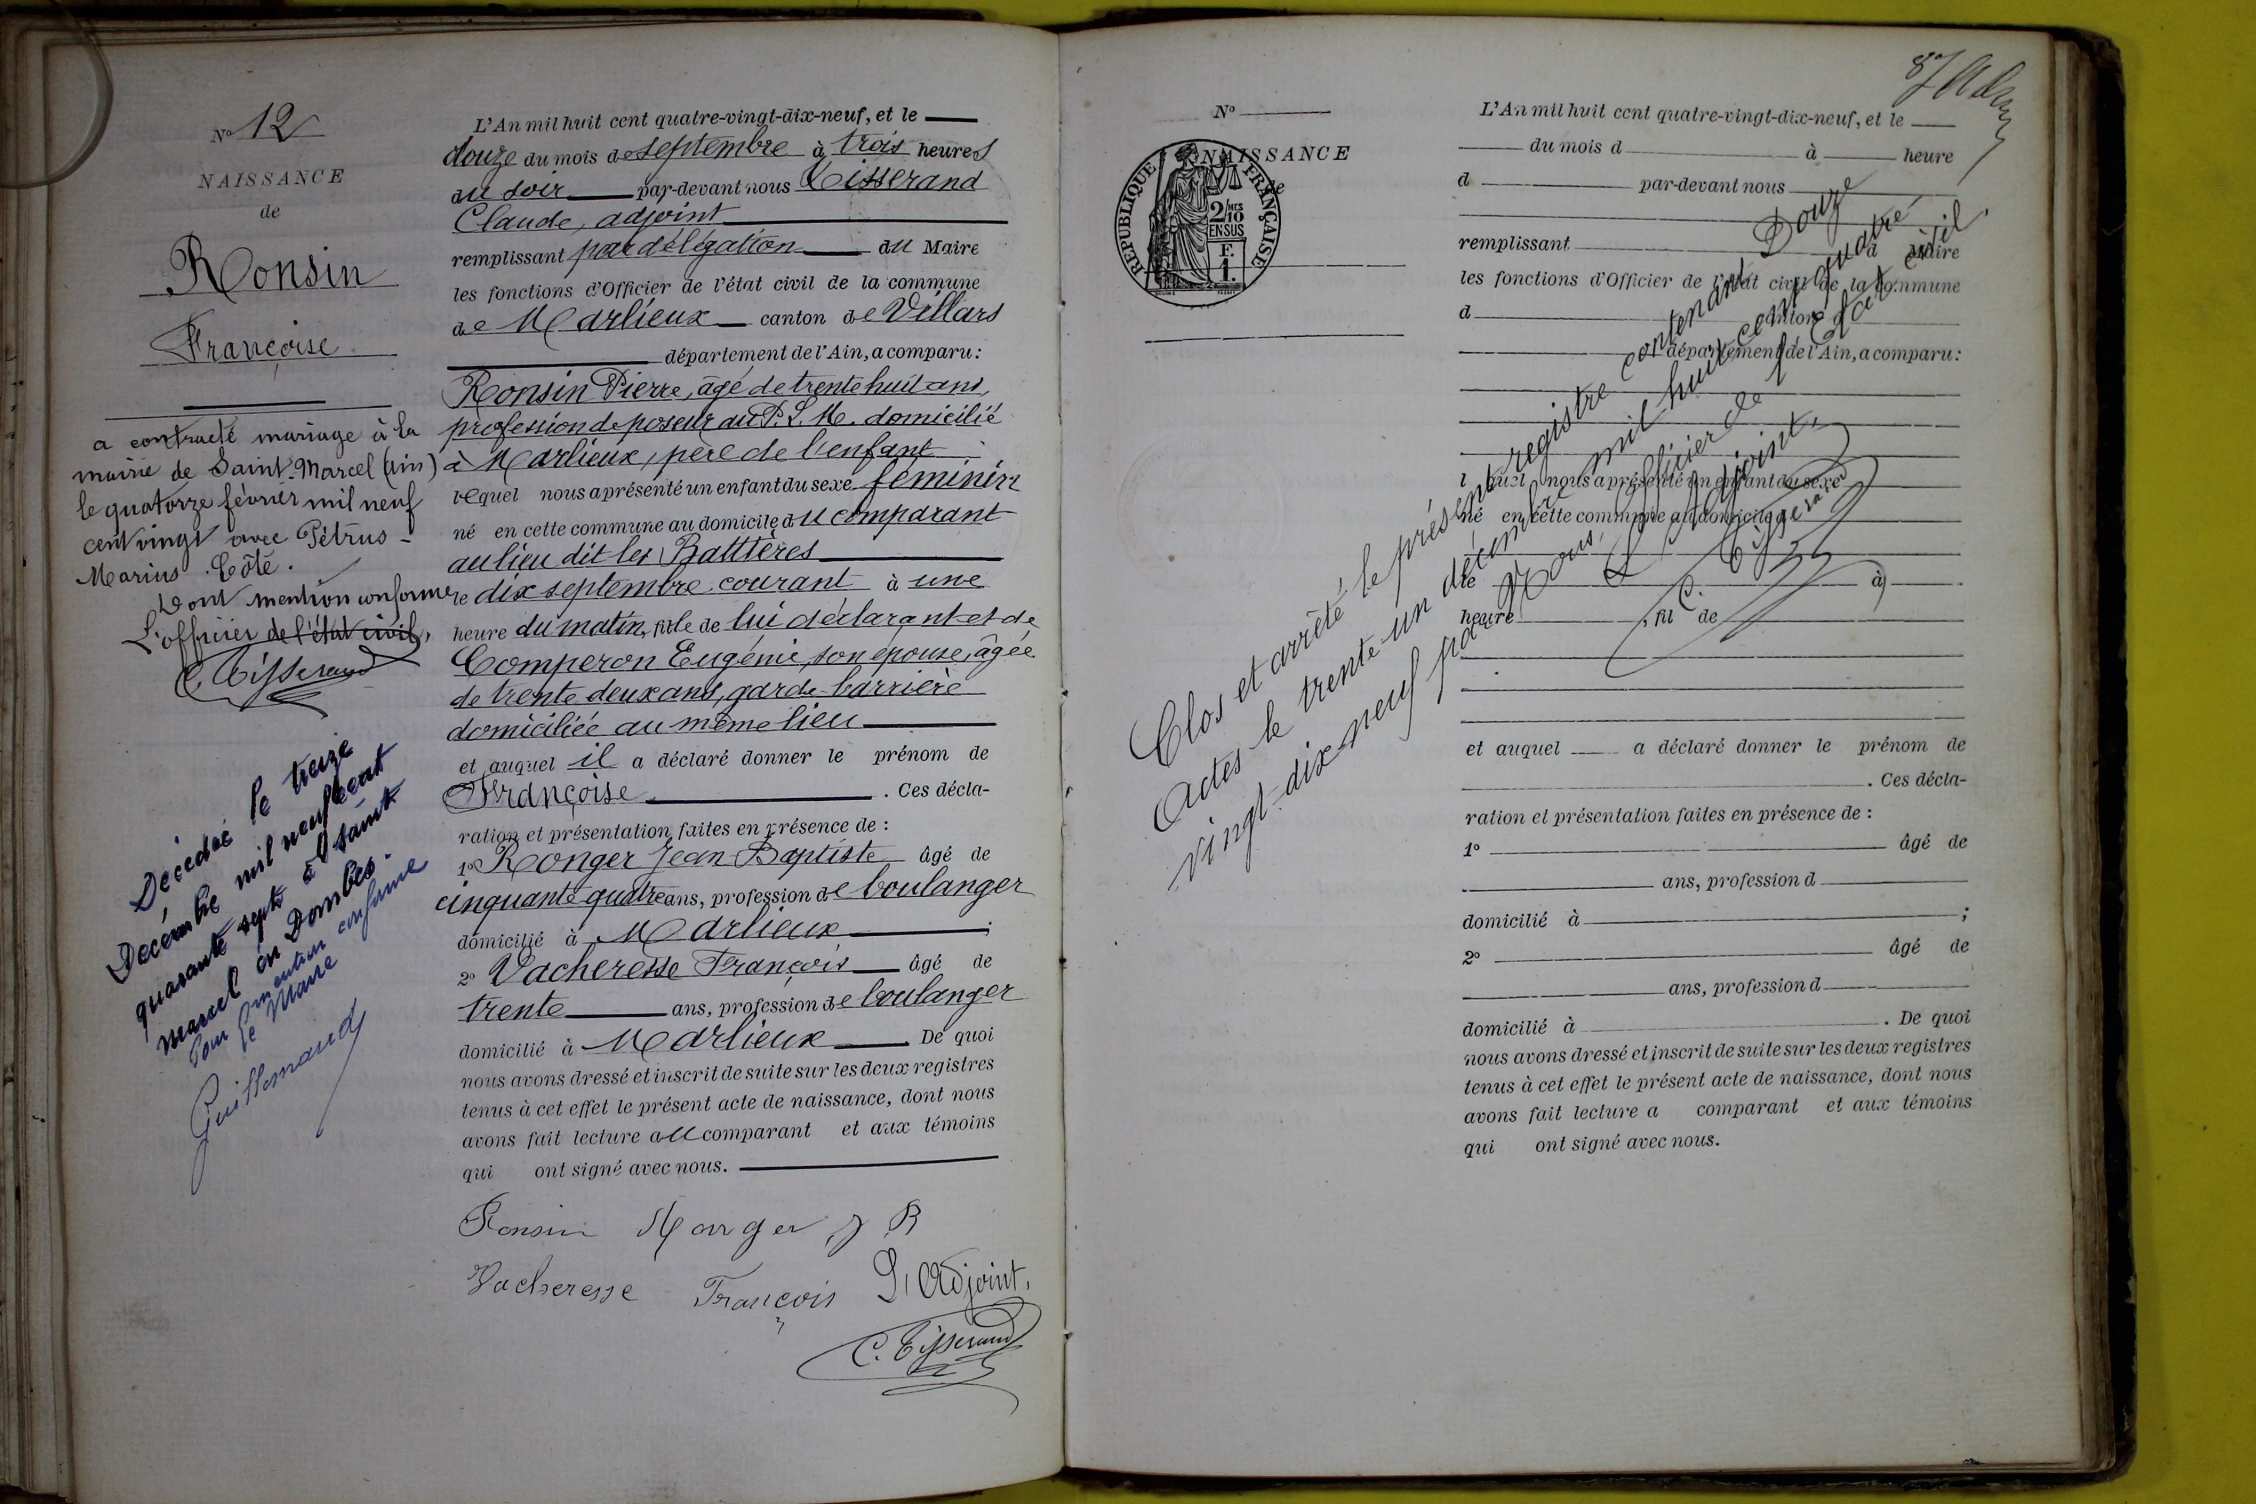 N° 12
NAISSANCE
de
Ronsin
Françoise
a contracté mariage à la
mairie de Saint-Marcel (Ain)
le quatorze février mil neuf
cent vingt avec Pétrus-
Marius Côte.
Dont mention conforme
L'officier de l'état civil,
C. Tisserand
Décédée le treize
Décembre mil neuf cent
quarante sept à Saint
Marcel en Dombes.
Pour mention conforme
Le Maire
Guillemaud
L'An mil huit cent quatre-vingt-dix-neuf, et le
douze du mois de septembre à trois heures
du soir par-devant nous Tisserand
Claude, adjoint
remplissant par délégation du Maire
les fonctions d'Officier de l'état civil de la commune
de Marlieux canton de Villars
département de l'Ain, a comparu:
Ronsin Pierre, âgé de trente huit ans,
profession de poseur au P. L. M. domicilié
à Marlieux, père de l'enfant
lequel nous a présenté un enfant du sexe féminin
né en cette commune au domicile du comparant
au lieu dit les Battières
le dix septembre courant à une
heure du matin, fille de lui déclarant et de
Comperon Eugénie, son épouse, âgée
de trente deux ans, garde-barrière
domiciliée au même lieu
et auquel il a déclaré donner le prénom de
Françoise. . Ces décla-
ration et présentation faites en présence de :
1° Ronger Jean Baptiste âgé de
cinquante quatre ans, profession de boulanger
domicilié à Marlieux ;
2° Vacheresse François âgé de
trente ans, profession de boulanger
domicilié à Marlieux De quoi
nous avons dressé et inscrit de suite sur les deux registres
tenus à cet effet le présent acte de naissance, dont nous
avons fait lecture au comparant et aux témoins
qui ont signé avec nous.
Ronsin J B
Vacheresse François L'Adjoint,
C. Tisserand
87
N°
NAISSANCE
de
RÉPUBLIQUE FRANÇAISE
2/10
EN SUS
F.
1.
L'An mil huit cent quatre-vingt-dix-neuf, et le
du mois d à heure
d par-devant nous
remplissant d Maire
les fonctions d'Officier de l'état civil de la commune
d canton d
département de l'Ain, a comparu:
l quel nous a présenté un enfant du sexe
né en cette commune au domicile d
le à
heure , fil de
et auquel a déclaré donner le prénom de
. Ces décla-
ration et présentation faites en présence de :
1° âgé de
ans, profession d
domicilié à ;
2° âgé de
ans, profession d
domicilié à . De quoi
nous avons dressé et inscrit de suite sur les deux registres
tenus à cet effet le présent acte de naissance, dont nous
avons fait lecture a comparant et aux témoins
qui ont signé avec nous.
Clos et arrêté le présent registre contenant Douze
actes le trente un décembre mil huit cent quatre
vingt-dix-neuf par Nous, Officier de l'Etat civil
L'Adjoint,
C. Tisserand